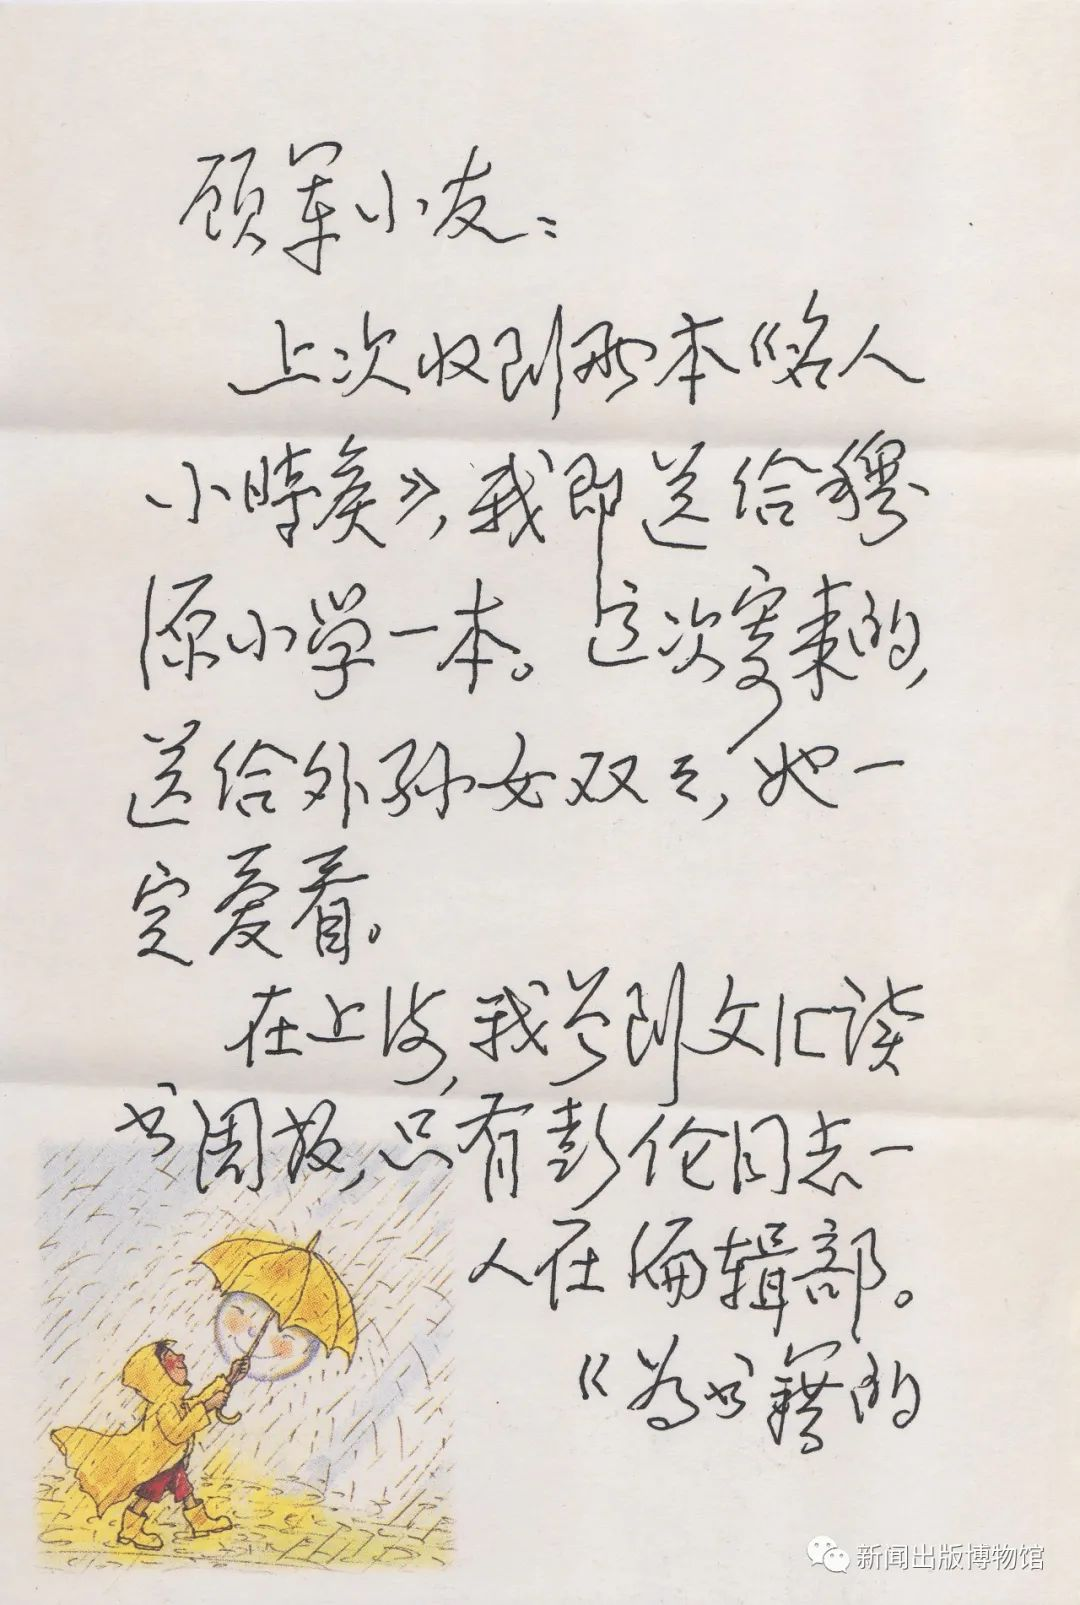 顾军小友：
上次收到两本《名人
小时候》，我即送给穆
源小学一本。这次寄来的，
送给外孙女双云，她一
定爱看。
在上海，我曾到文汇读
书周报，只有彭伦同志一
人在编辑部。
《为书籍的
新闻出版博物馆